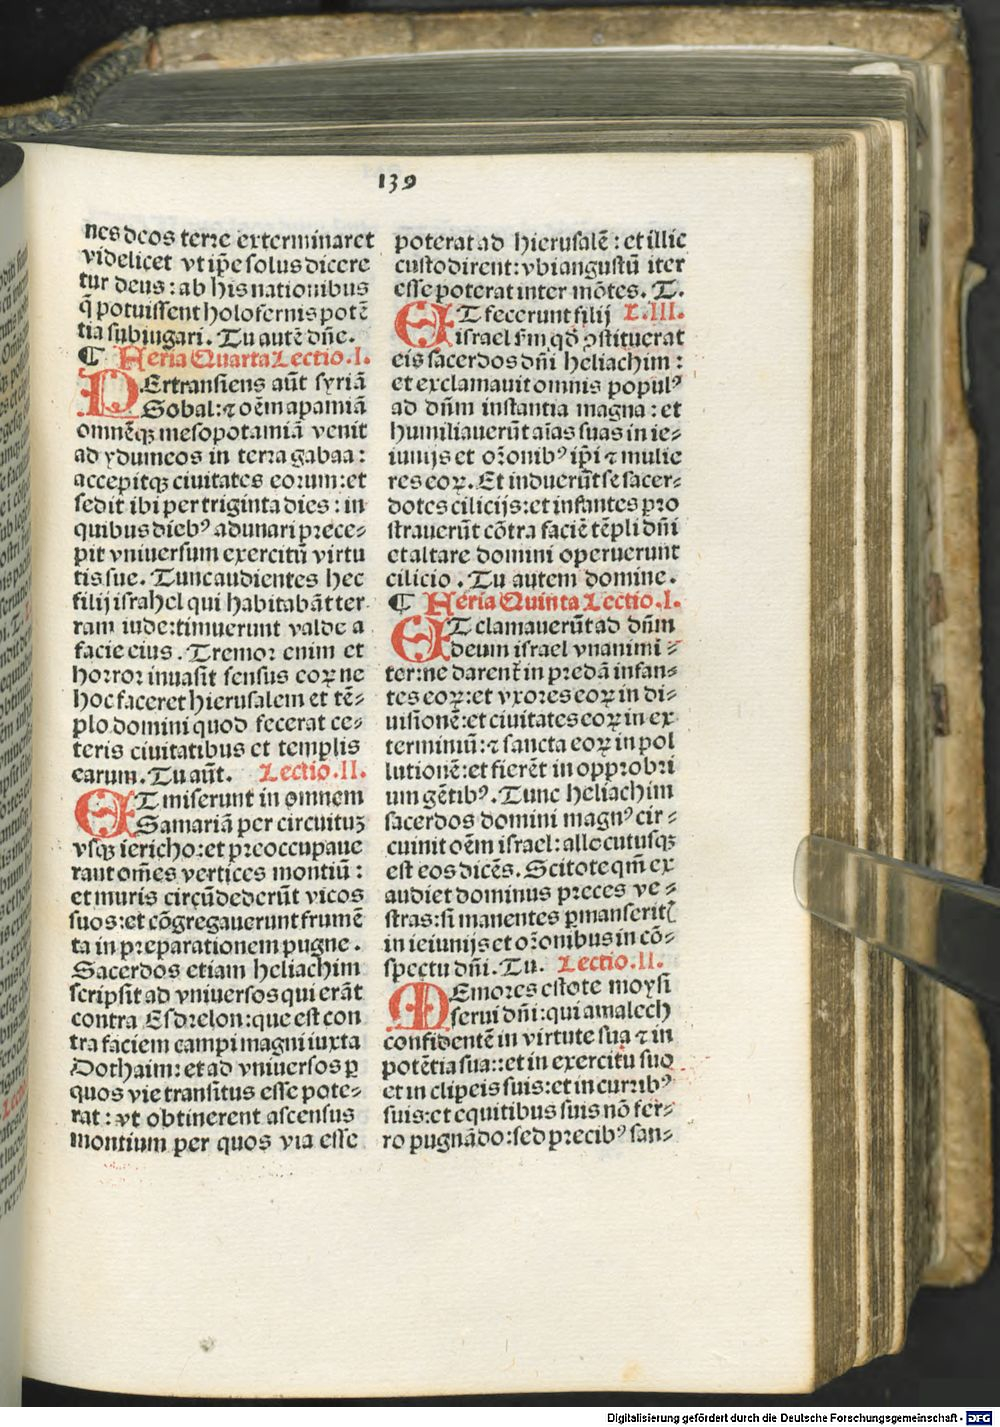 139
nes deos terre exterminaret
videlicet vt ip̄e solus dicere
tur deus : ab his nationibus
q̄ potuissent holofernis potē
tia subiugari. Tu autē dn̄e.
¶ Feria Quarta Lectio.I.
PErtransiens aūt syriā
Sobal:⁊ oēm apamiā
omnēqꝫ mesopotamiā venit
ad ydumeos in terra gabaa :
accepitqꝫ ciuitates eorum:et
sedit ibi per triginta dies : in
quibus dieb⁹ adunari prece⸗
pit vniuersum exercitū virtu
tis sue. Tunc audientes hec
filij israhel qui habitabāt ter
ram iude:timuerunt valde a
facie eius. Tremor enim et
horror inuasit sensus eoꝝ ne
hoc faceret hierusalem et tē⸗
plo domini quod fecerat ce⸗
teris ciuitatibus et templis
earum. Tu aūt. Lectio.II.
ET miserunt in omnem
Samariā per circuituꝫ
vsqꝫ iericho:et preoccupaue
rant om̄es vertices montiū :
et muris circūdederūt vicos
suos:et cōgregauerunt frumē
ta in preparationem pugne.
Sacerdos etiam heliachim
scripsit ad vniuersos qui erāt
contra Esdrelon:que est con
tra faciem campi magni iuxta
Dothaim: et ad vniuersos ꝑ
quos vie transitus esse pote⸗
rat : vt obtinerent ascensus
montium per quos via esse
poterat ad hierusalē : et illic
custodirent:vbi angustū iter
esse poterat inter mōtes. T.
ET fecerunt filij L.III.
israel fm qd̄ ꝯstituerat
eis sacerdos dn̄i heliachim :
et exclamauit omnis popul⁹
ad dn̄m instantia magna : et
humiliauerūt aīas suas in ie⸗
iunijs et or̄onib⁹ ip̄i ⁊ mulie
res eoꝝ. Et induerūt se sacer⸗
dotes cilicijs:et infantes pro
strauerūt cōtra faciē tēpli dn̄i
et altare domini operuerunt
cilicio. Tu autem domine.
¶ Feria Quinta Lectio.I.
ET clamauerūt ad dn̄m
deum israel vnanimi⸗
ter:ne darent̄ in predā infan⸗
tes eoꝝ:et vxores eoꝝ in di⸗
uisionē:et ciuitates eoꝝ in ex
terminiū:⁊ sancta eoꝝ in pol
lutionē:et fierēt in opprobri
um gētib⁹. Tunc heliachim
sacerdos domini magn⁹ cir⸗
cuiuit oēm israel: allocutusqꝫ
est eos dicēs. Scitote qm̄ ex
audiet dominus preces ve⸗
stras:si manentes ꝑmanserit̄
in ieiunijs et or̄onibus in cō⸗
spectu dn̄i. Tu. Lectio.II.
MEmores estote moysi
serui dn̄i: qui amalech
confidentē in virtute sua ⁊ in
potētia sua::et in exercitu suo
et in clipeis suis:et in currib⁹
suis:et equitibus suis nō fer⸗
ro pugnādo:sed precib⁹ san⸗
Digitalisierung gefördert durch die Deutsche Forschungsgemeinschaft - DFG